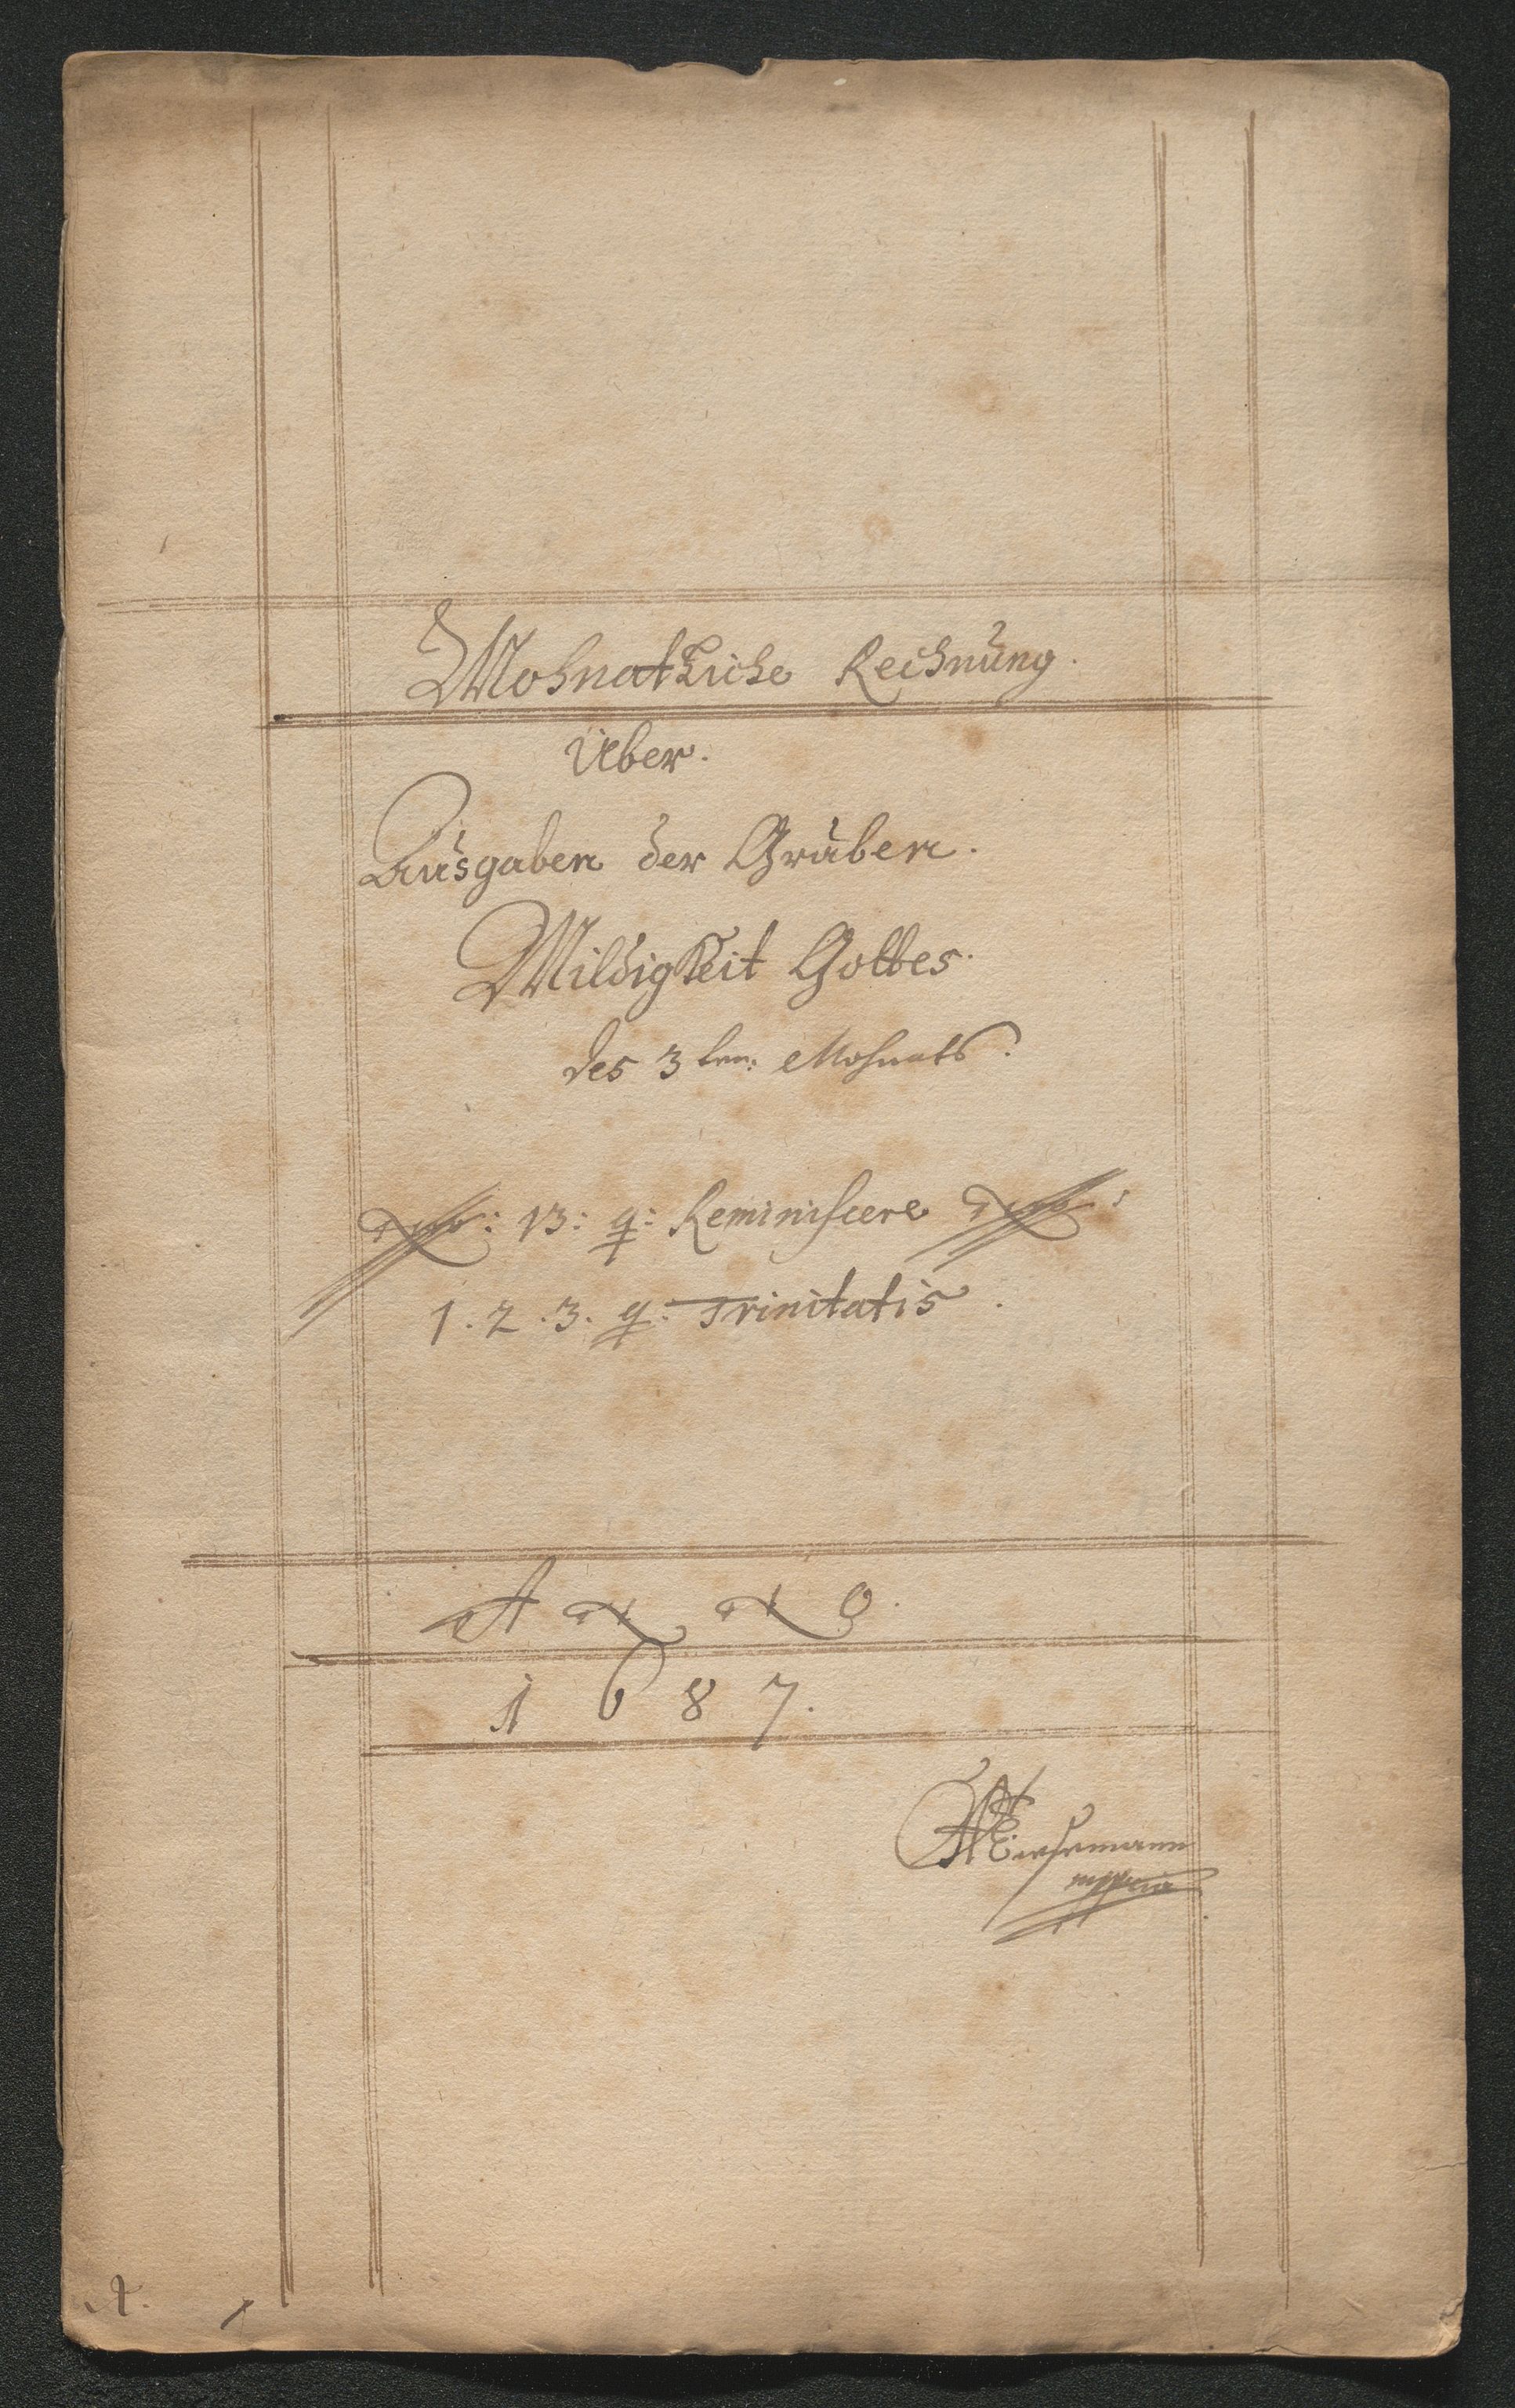 Mohnatliche Rechnung.
Über.
Ausgaben der Gruben.
Mildigkeit Gottes.
des 3ten: Mohnats.
No: 13: q: Reminiscere No:
1. 2. 3. q. Trinitatis.
ANNO.
1687.